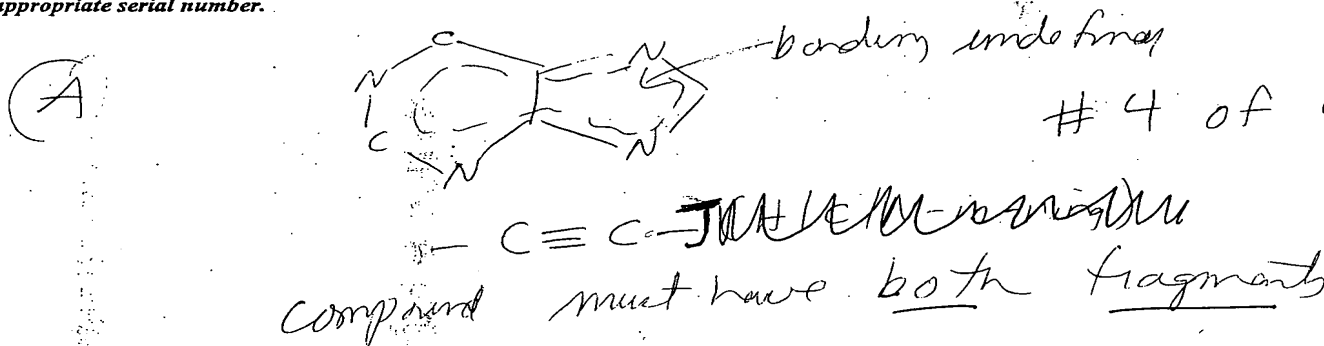 appropriate serial number.
bonding undefined
A
C
N
N
# 4 of
C
N
N
— C ≡ C —
compound must have both fragments